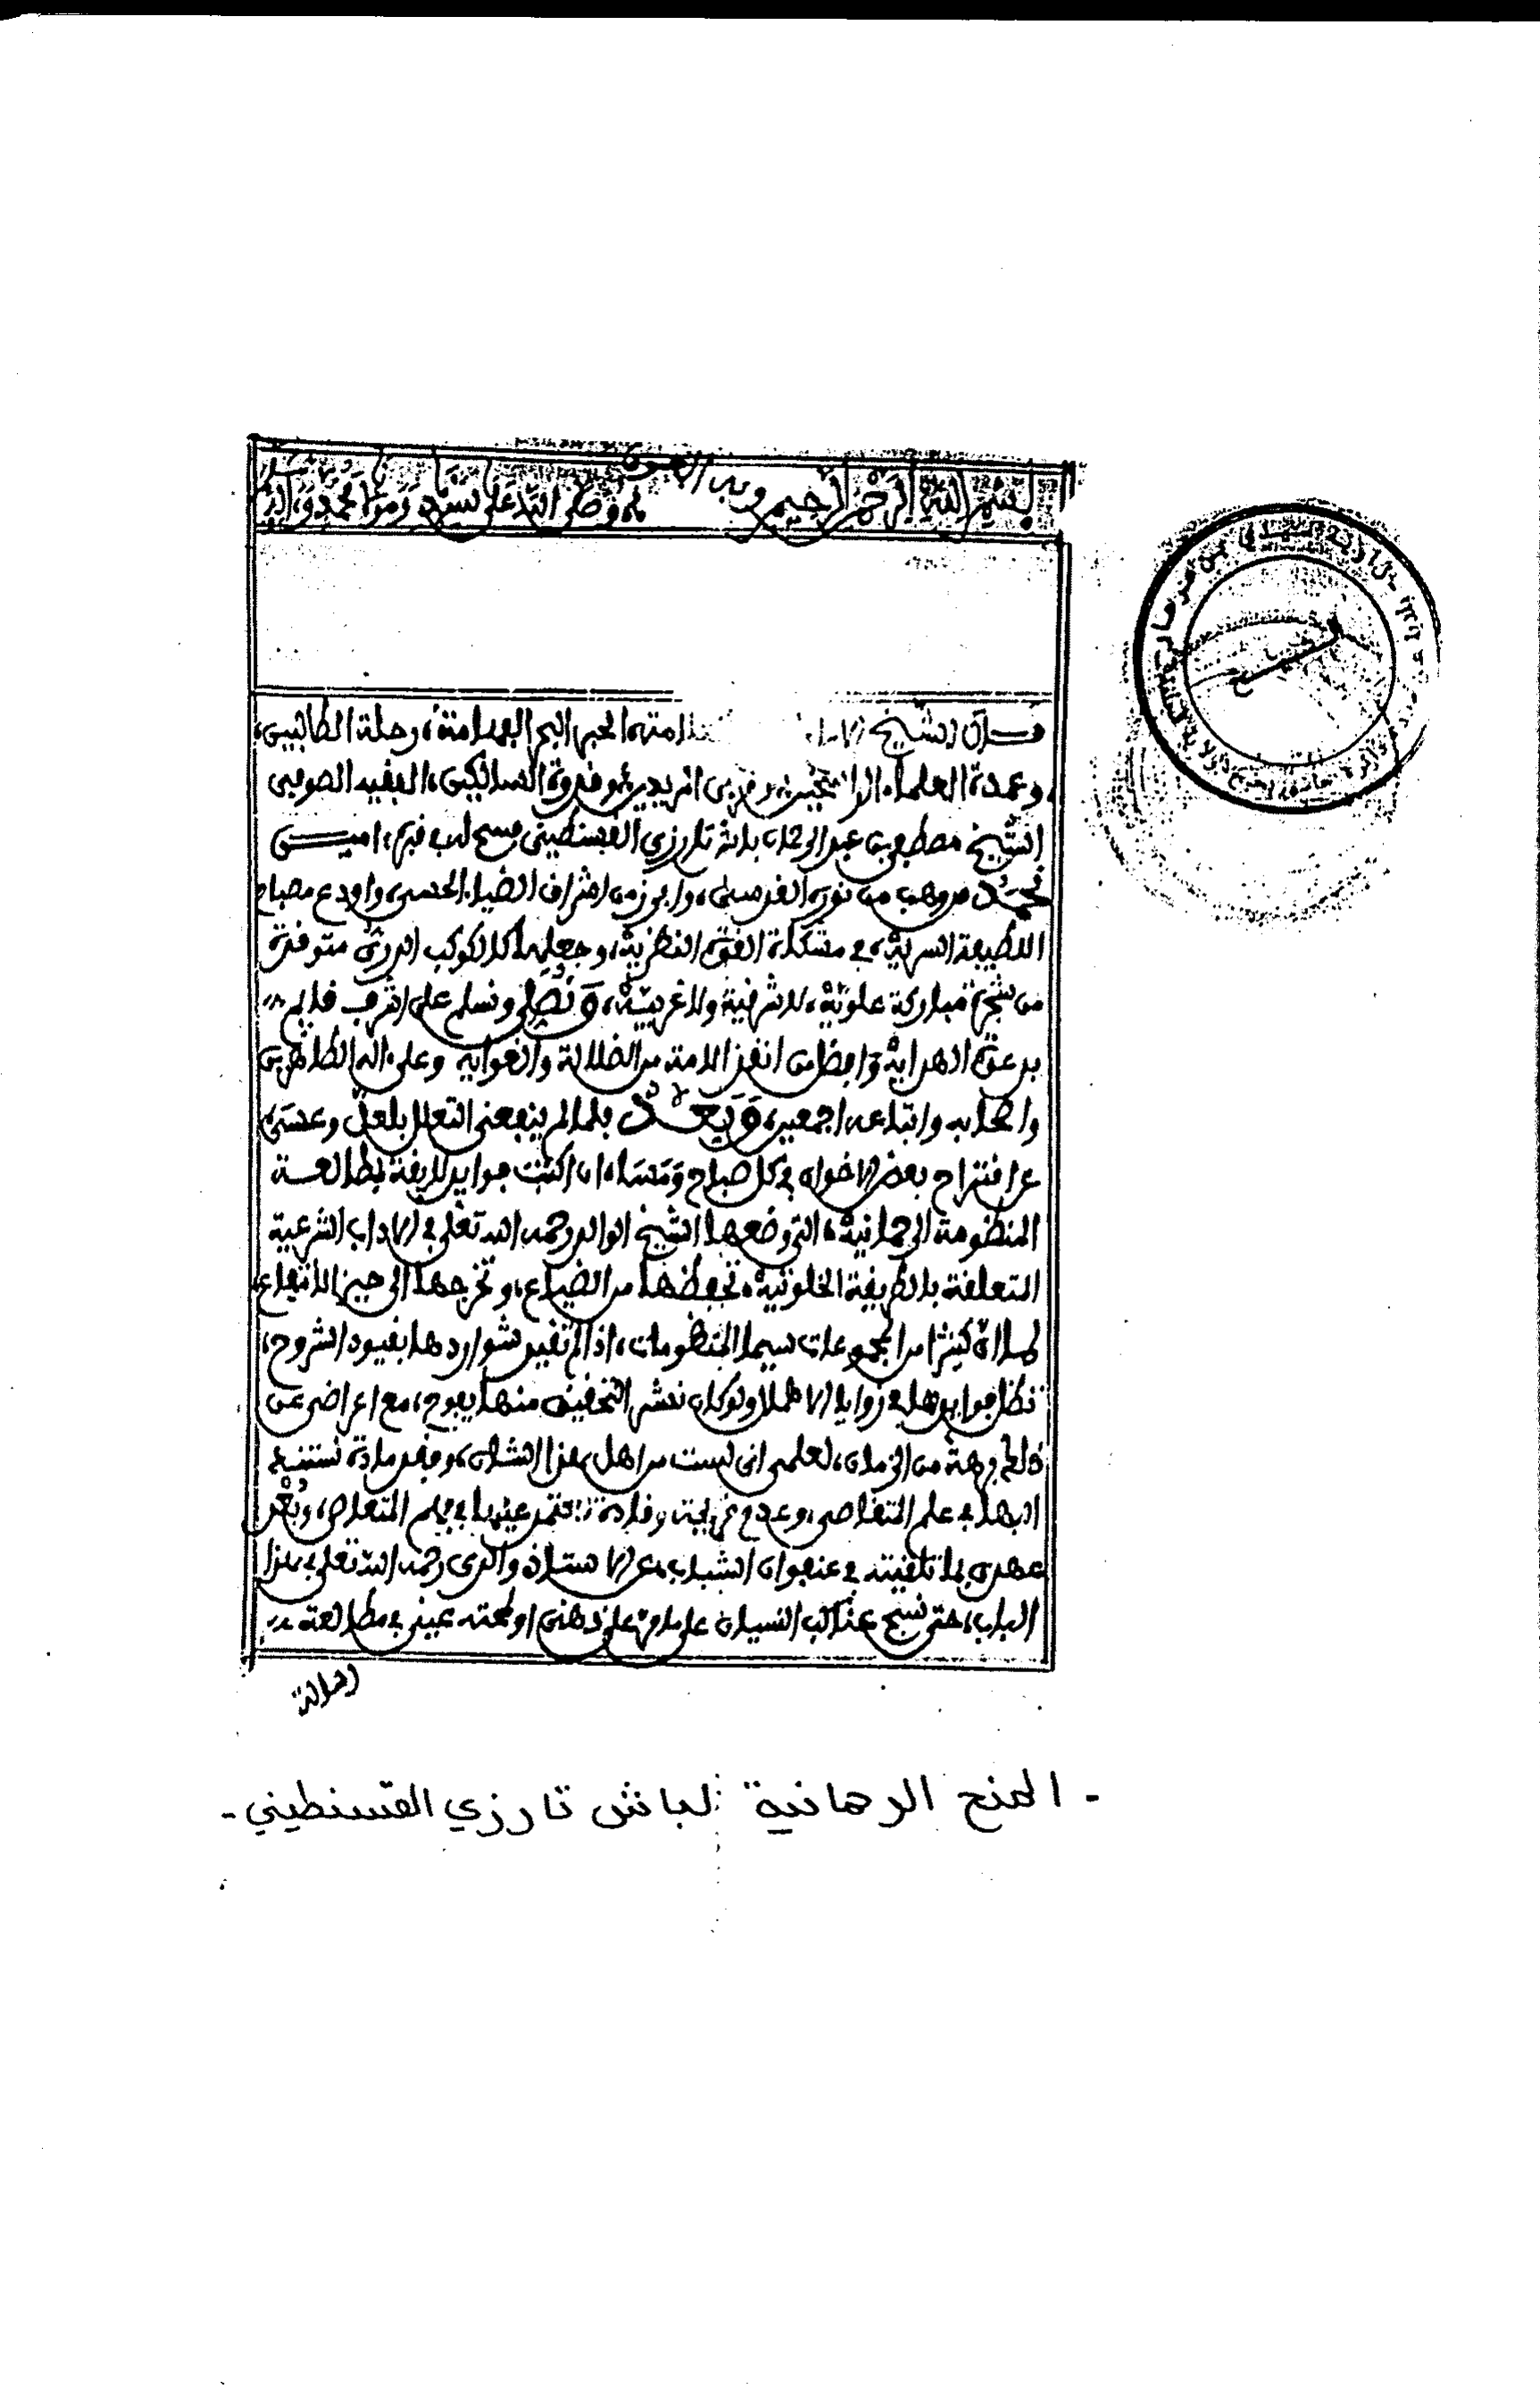 بسم الله الرحمن الرحيم وبه العون وصلى الله على سيدنا ومولانا محمد وآله
قال الشيخ الحبر البحر الفهامة، رحلة الطالبين،
وعمدة العلماء الراسخين، ومربي المريدين، وقدوة السالكين، الفقيه الصوفي
الشيخ مصطفى بن عبد الرحمان باش تارزي القسنطيني فسح له في قبره، امين
نحمد من وهب من نوره القدسي، وابرز من اشراف الضياء الحسي، واودع مصباح
اللطيفة السرية، في مشكاة القوة النظرية، وجعلها كالكوكب الدري متوقدة
من شجرة مباركة علوية، لا شرقية ولا غربية، ونصلي ونسلم على اشرف قايم
بدعوة الهداية وافضل من انقذ الامة من الضلالة والغواية وعلى اله الطاهرين
واصحابه واتباعه اجمعين، وبعد فلما لم ينفعني التعلل بلعل وعسى
عن اقتراح بعض الاخوان في كل صباح ومساء، ان اكتب فوايد لايقة بمطالعة
المنظومة الرحمانية، التي وضعها الشيخ الوالد رحمه الله تعلى في الاداب الشرعية
المتعلقة بالطريقة الخلوتية، تحفظها من الضياع، وتخرجها الى حيز الانتفاع
لما ان كثيرا من المجموعات سيما المنظومات، اذا لم تقيد شواردها بقيود الشروح،
تظل فوايدها في زوايا الاهمال ولو كان نشر التحقيق منها يفوح، مع اعراضي عن
ذلك برهة من الزمان، لعلمي اني لست من اهل هذا الشان، وفقد مادة تستند
اليها في علم التقاصي، وعدم قريحة وقادة يعتمد عليها في فهم المتعاصي، وبعد
عهدي بما تلقيته في عنفوان الشباب، عن الاستاذ والدي رحمه الله تعلى في هذا
الباب، حتى نسج عناكب النسيان على ما مر على ذهني او لمحته عيني في مطالعة
رسالة
- المنح الرحمانية لباش تارزي القسنطيني -